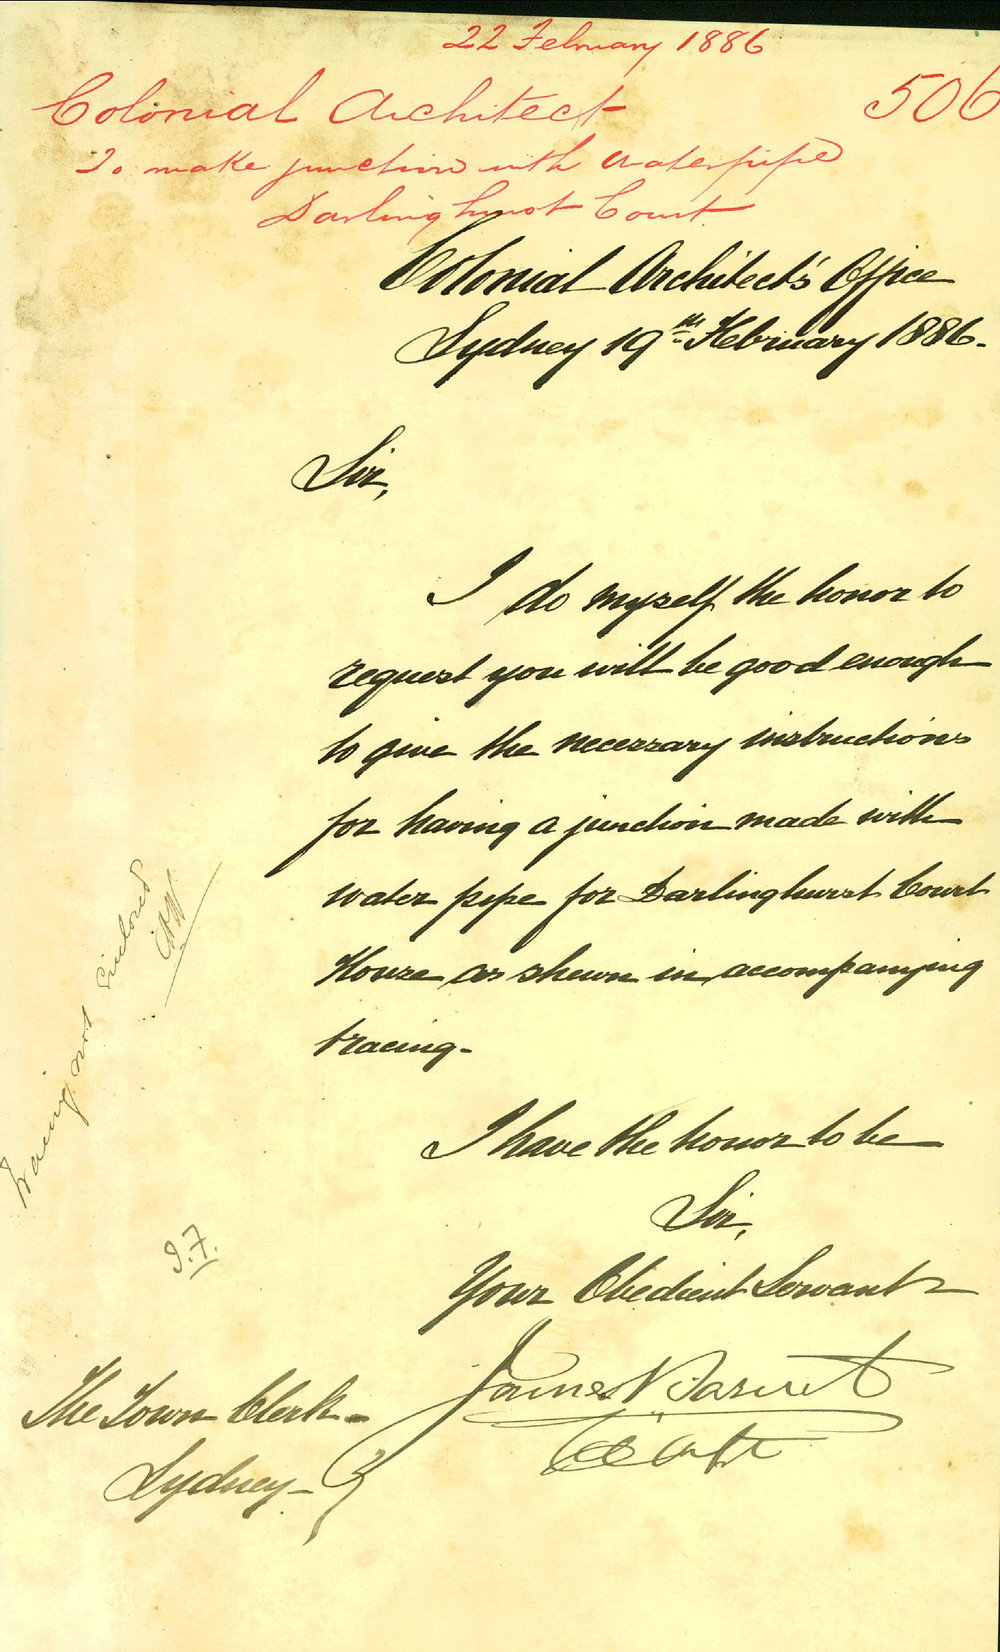 22 February 1886
506
Colonial Architect
To make junction with waterpipe
Darlinghurst Court
Colonial Architect's Office
Sydney 19th February 1886.
Sir,
I do myself the honor to
request you will be good enough
to give the necessary instructions
for having a junction made with
water pipe for Darlinghurst Court
House as shewn in accompanying
tracing-
I have the honor to be
Sir,
Your Obedient Servant
James Barnet
Col Archt
The Town Clerk-
Sydney-
Tracing not enclosed
J.F.